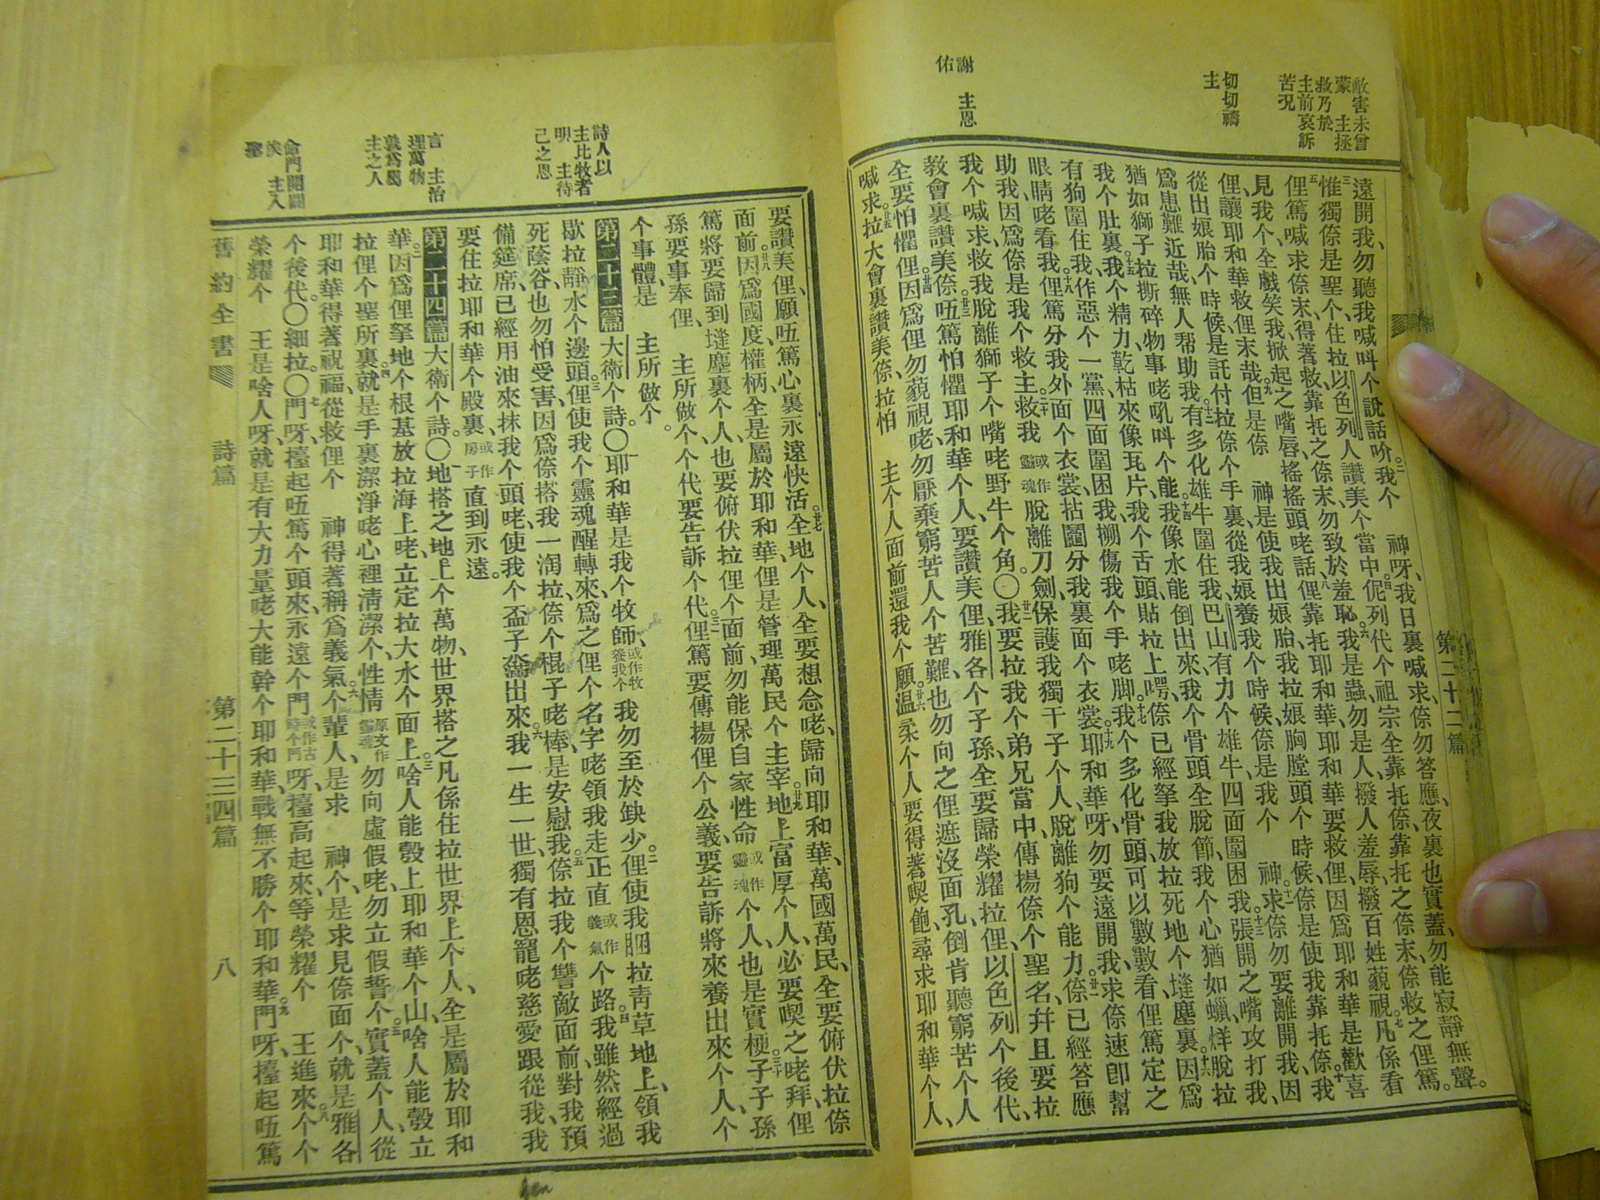 敵害未曾
蒙　主拯
救乃於
主前哀訴
苦況
切切禱
主
謝　主恩
佑
第二十二篇
遠開我、勿聽我喊叫个說話吤、我个　神呀、我日裏喊求、倷勿答應、夜裏也實蓋、勿能寂靜無聲。
惟獨倷是聖个、住拉以色列人讚美个當中、伲列代个祖宗全靠托倷、靠托之倷末、倷救之俚篤。
俚篤喊求倷末、得著救、靠托之倷末、勿致於羞恥、我是蟲、勿是人、撥人羞辱、撥百姓藐視、凡係看
見我个、全戲笑我、掀起之嘴唇、搖搖頭咾話、俚靠托耶和華、耶和華要救俚、因爲耶和華是歡喜
俚、讓耶和華救俚末哉、但是倷　神是使我出娘胎、我拉娘胸膛頭个時候、倷是使我靠托倷、我
從出娘胎个時候、是託付拉倷个手裏、從我娘養我个時候、倷是我个　神、求倷勿要離開我、因
爲患難近哉、無人帮助我、有多化雄牛圍住我、巴山有力个雄牛、四面圍困我、張開之嘴攻打我、
猶如獅子拉撕碎物事咾吼叫个能、我像水能倒出來、我个骨頭全脫節、我个心猶如蠟样、脫拉
我个肚裏、我个精力乾枯來像瓦片、我个舌頭貼拉上㗁、倷已經拏我放拉死地个𡏖塵裏、因爲
有狗圍住我、作惡个一黨、四面圍困我、搠傷我个手咾脚、我个多化骨頭、可以數數看、俚篤定之
眼睛咾看我、俚篤分我外面个衣裳、拈鬮分我裏面个衣裳、耶和華呀、勿要遠開我、求倷速卽幫
助我、因爲倷是我个救主、救我或作靈魂脫離刀劍、保護我獨干子个人、脫離狗个能力、倷已經答應
我个喊求、救我脫離獅子个嘴咾野牛个角、〇我要拉我个弟兄當中、傳揚倷个聖名、幷且要拉
敎會裏讚美倷、㕶篤怕懼耶和華个人、要讚美俚、雅各个子孫、全要歸榮耀拉俚、以色列个後代、
全要怕懼俚、因爲俚勿藐視咾勿厭棄窮苦人个苦難、也勿向之俚遮沒面孔、倒肯聽窮苦个人
喊求、拉大會裏讚美倷、拉怕　主个人面前還我个願、温柔个人要得著喫飽、尋求耶和華个人、
要讚美俚、願㕶篤心裏永遠快活、全地个人、全要想念咾歸向耶和華、萬國萬民、全要俯伏拉倷
面前、因爲國度權柄、全是屬於耶和華、俚是管理萬民个主宰、地上富厚个人、必要喫之咾拜俚、
篤將要歸到𡏖塵裏个人、也要俯伏拉俚个面前、勿能保自家性命或作靈魂个人、也是實梗、子子孫
孫要事奉俚、　主所做个、个代要告訴个代、俚篤要傳揚俚个公義、要告訴將來養出來个人、个
个事體、是　主所做个。
第二十三篇大衛个詩〇耶和華是我个牧師、或作牧養我个我勿至於缺少、俚使我𥅴拉靑草地上、領我
歇拉靜水个邊頭、俚使我个靈魂醒轉來、爲之俚个名字咾領我走正直或作義氣个路、我雖然經過
死陰谷、也勿怕受害、因爲倷搭我一淘拉、倷个棍子咾棒、是安慰我、倷拉我个讐敵面前、對我預
備筵席、已經用油來抹我个頭咾、使我个盃子滿出來、我一生一世、獨有恩寵咾慈愛跟從我、我
要住拉耶和華个殿裏或作房子直到永遠。
第二十四篇大衛个詩〇地搭之地上个萬物、世界搭之凡係住拉世界上个人、全是屬於耶和
華、因爲俚拏地个根基放拉海上咾、立定拉大水个面上、啥人能彀上耶和華个山、啥人能彀立
拉俚个聖所裏、就是手裏潔淨咾心裡淸潔个、性情原文作靈魂勿向虛假咾、勿立假誓个、實蓋个人、從
耶和華得著祝福、從救俚个　神得著稱爲義氣个、輩人、是求　神个、是求見倷面个、就是雅各
个後代。〇細拉。〇門呀、擡起㕶篤个頭來、永遠个門或作古時个門呀、擡高起來、等榮耀个　王進來、个个
榮耀个　王是啥人呀、就是有大力量咾大能幹个耶和華、戰無不勝个耶和華、門呀、擡起㕶篤
詩人以
主比牧者
唄　主待
己之恩
言　主治
理萬物
孰爲屬
主之人
命門開闢
俟　主入
聖
舊約全書　詩篇　第二十三四篇　八